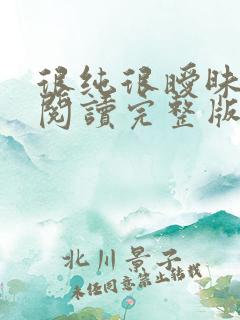 很纯很曖昧
閱讀完整版
北川景子
未经同意禁止转载